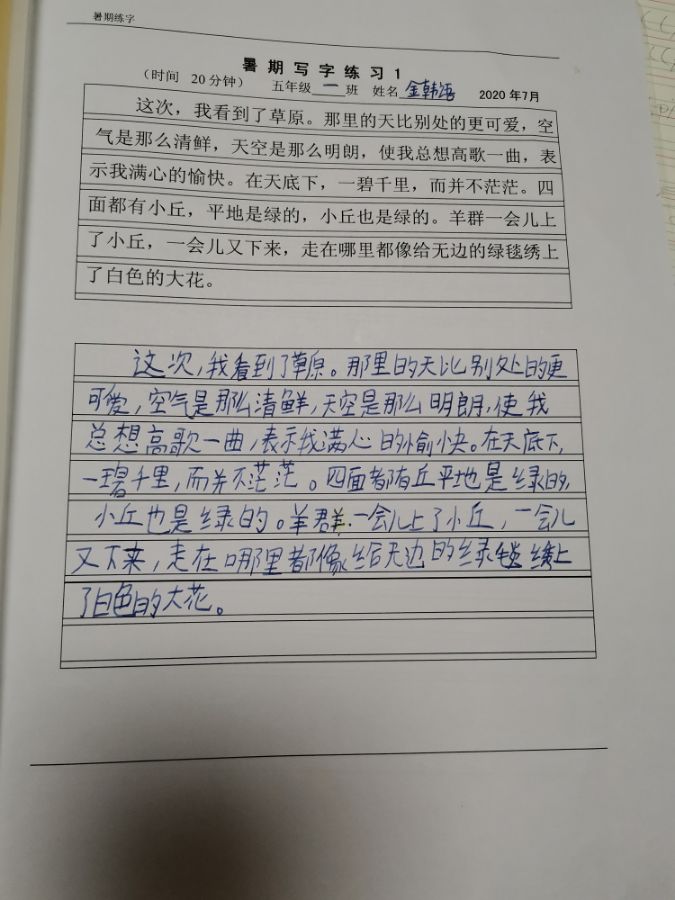 暑期练字
暑期写字练习1
（时间 20分钟） 五年级一班 姓名金韩 2020年7月
这次，我看到了草原。那里的天比别处的更可爱，空
气是那么清鲜，天空是那么明朗，使我总想高歌一曲，表
示我满心的愉快。在天底下，一碧千里，而并不茫茫。四
面都有小丘，平地是绿的，小丘也是绿的。羊群一会儿上
了小丘，一会儿又下来，走在哪里都像给无边的绿毯绣上
了白色的大花。
这次，我看到了草原。那里的天比别处的更
可爱，空气是那么清鲜，天空是那么明朗，使我
总想高歌一曲，表示我满心的愉快。在天底下，
一碧千里，而并不茫茫。四面都有丘平地是绿的，
小丘也是绿的。羊群，一会儿上了小丘，一会儿
又下来，走在哪里都像给无边的绿毯绣上
了白色的大花。